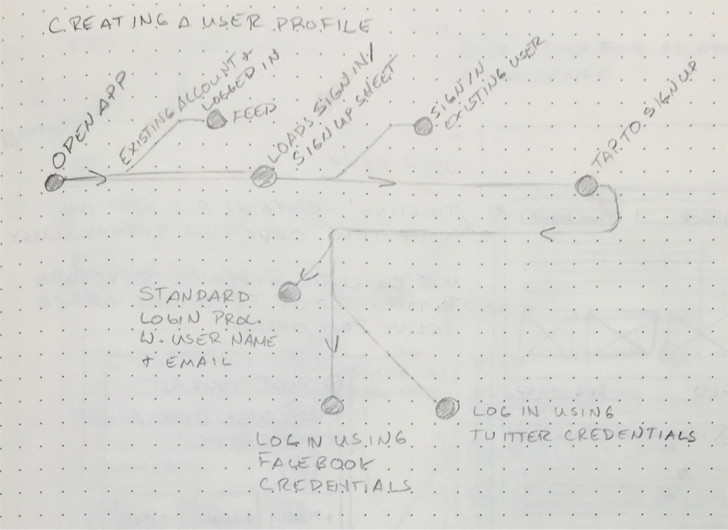 CREATING A USER PROFILE
OPEN APP
EXISTING ACCOUNT +
LOGGED IN
FEED
LOADS SIGN IN/
SIGN UP SHEET
SIGN IN
EXISTING USER
TAP TO SIGN UP
STANDARD
LOGIN PROC.
W. USER NAME
+ EMAIL
LOG IN USING
FACEBOOK
CREDENTIALS
LOG IN USING
TWITTER CREDENTIALS